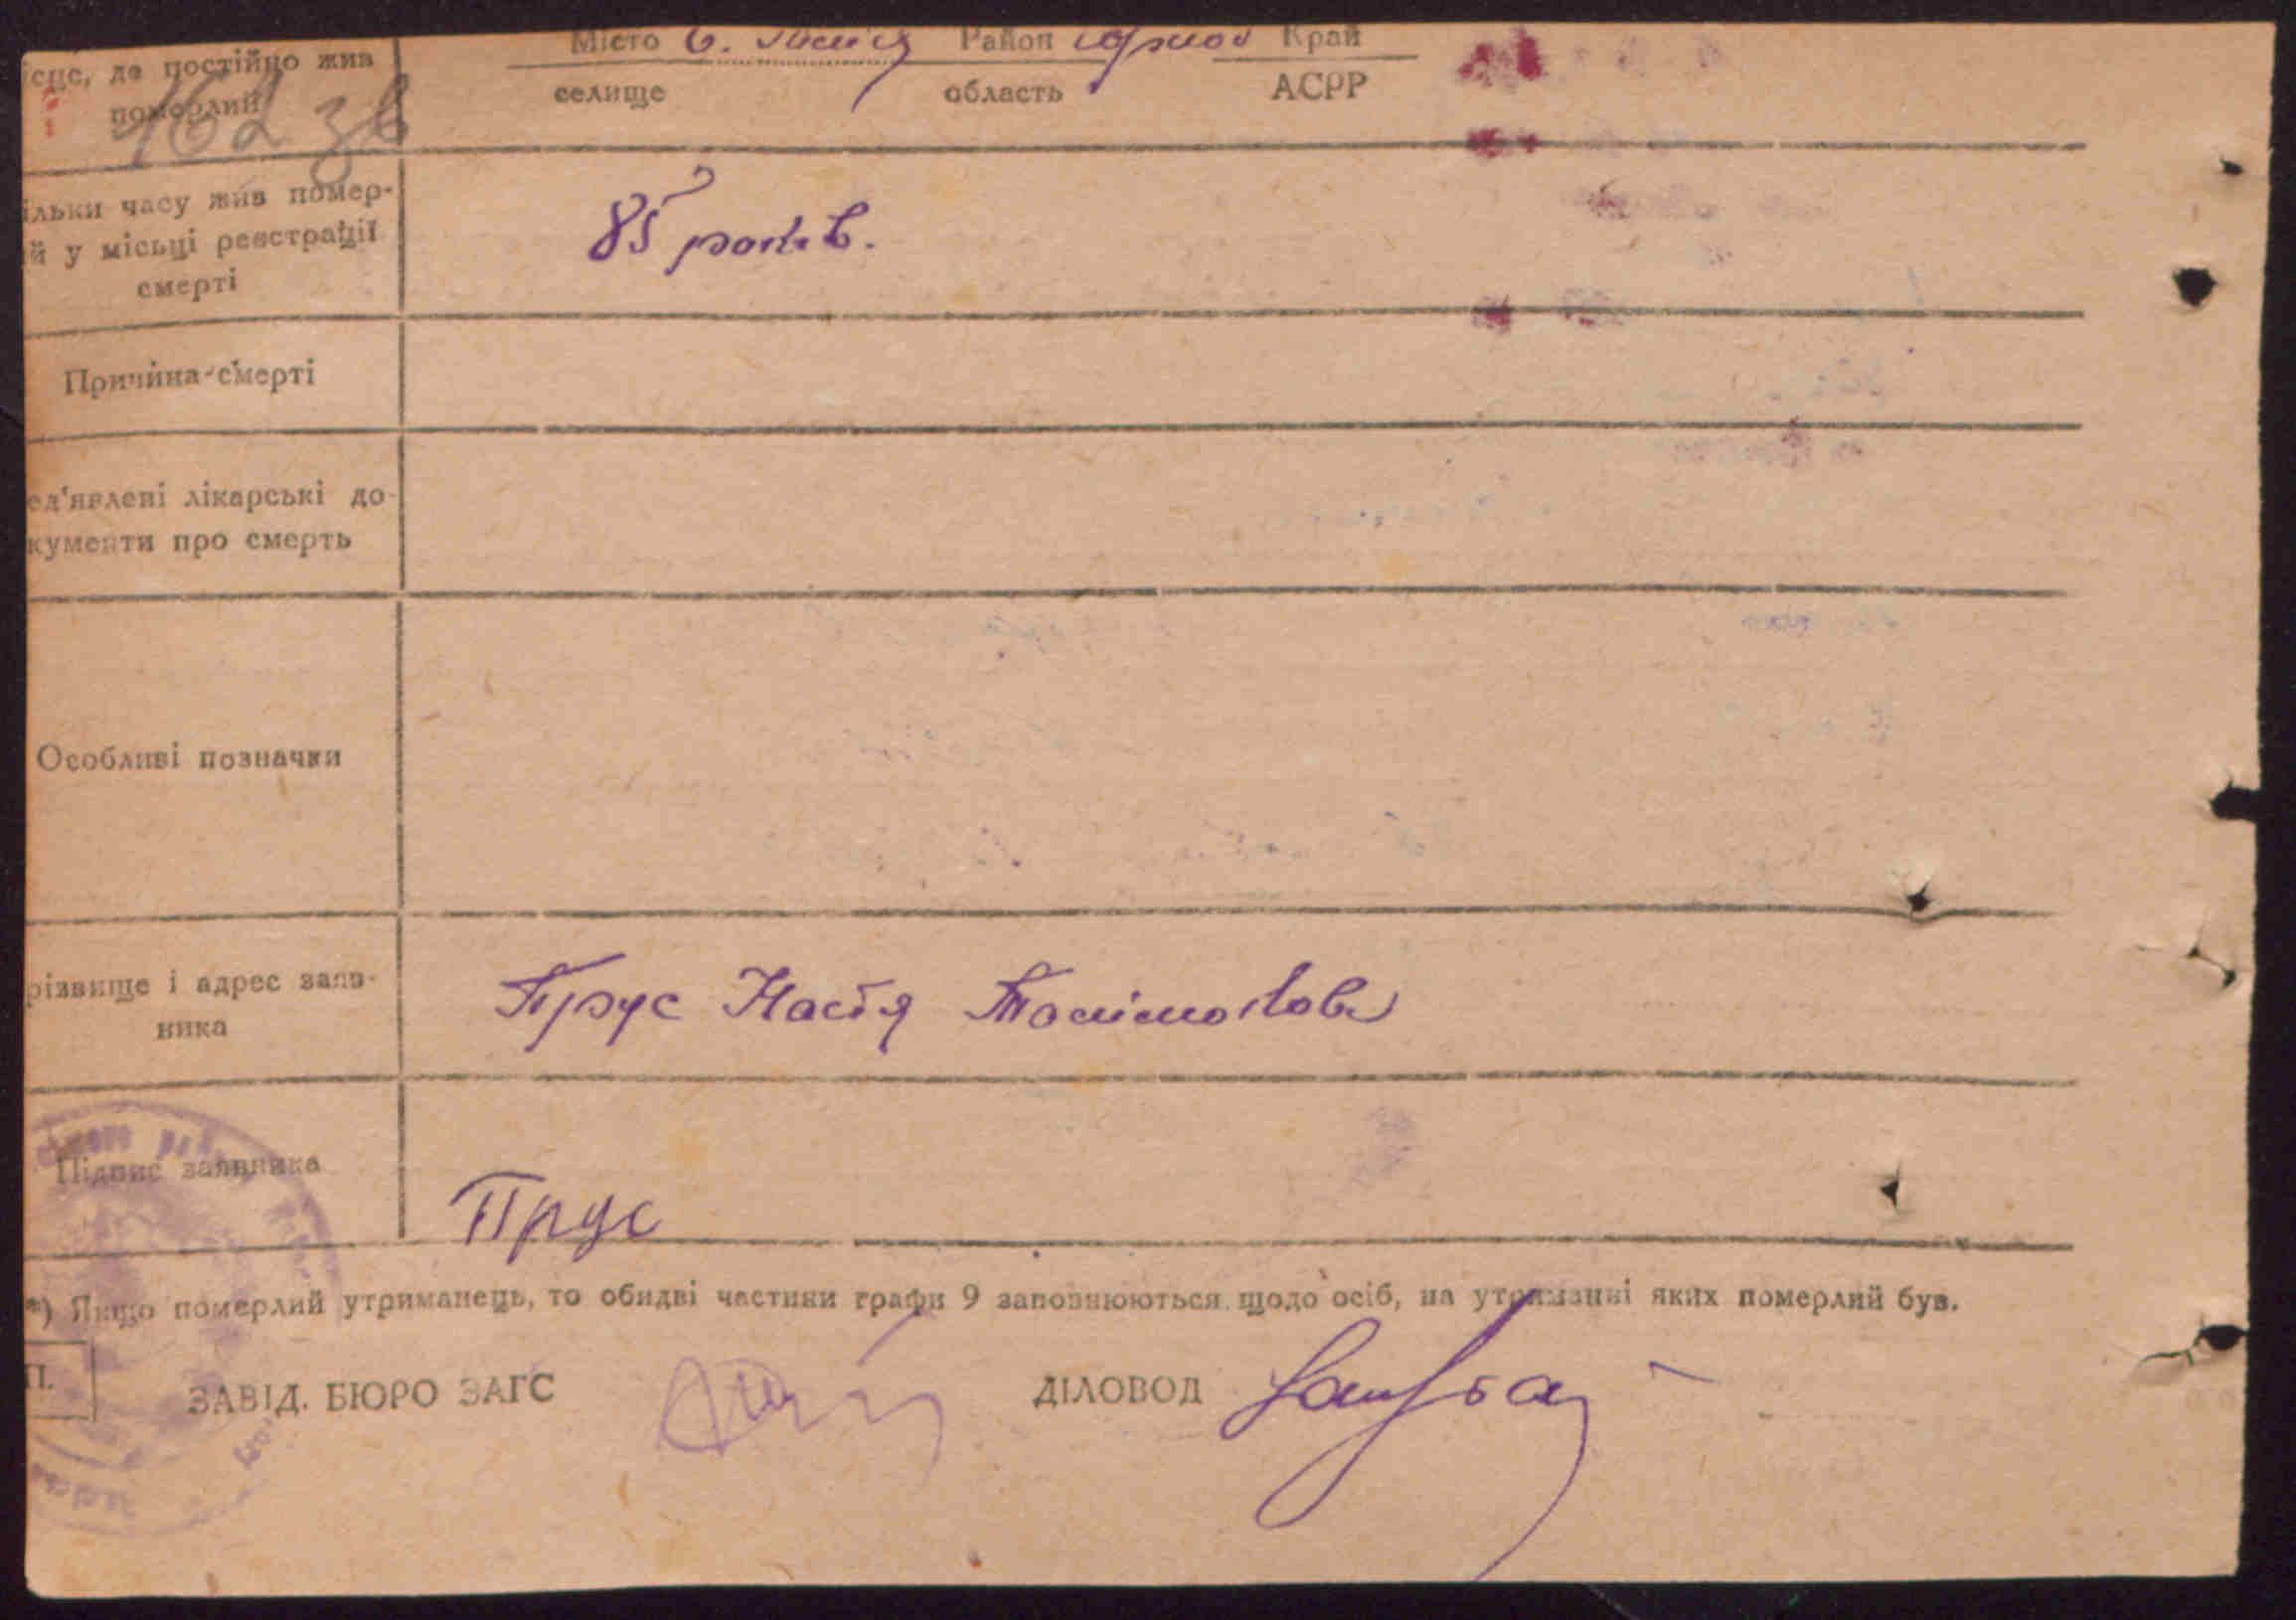 Місто с. Район Край
сце, де постійно жив
селище область АСРР
померлий
162 зв
ільки часу жив помер-
й у місьці реєстрації
смерті
85 років.
Причина смерті
ед'явлені лікарські до-
кументи про смерть
Особливі позначки
різвище і адрес заяв-
ника
Прус Настя
Підпис заявника
Прус
*) Якщо померлий утриманець, то обидві частини графи 9 заповнюються щодо осіб, на утриманні яких померлий був.
П.
ЗАВІД. БЮРО ЗАГС ДІЛОВОД